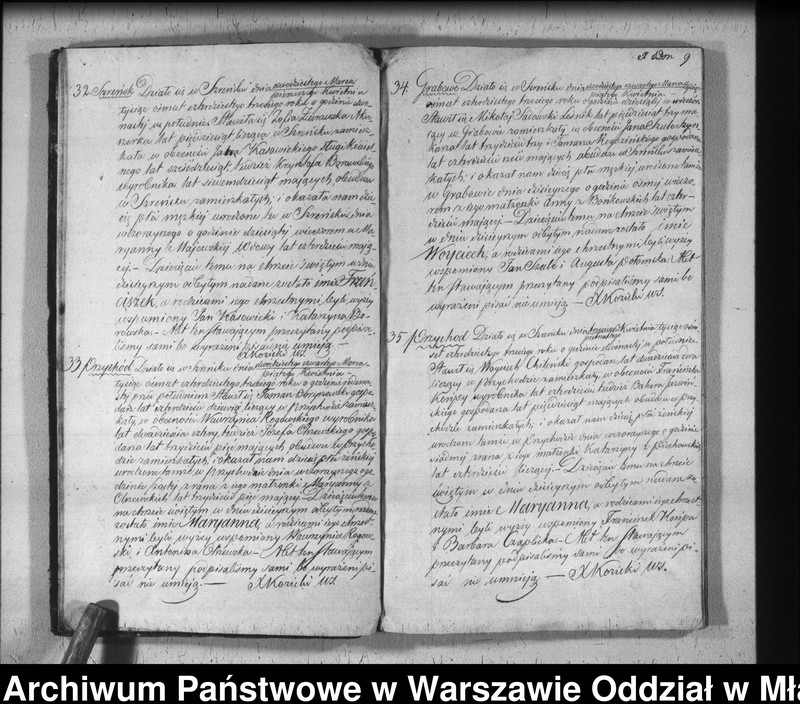 32. Szreńsk Działo się w Szreńsku dnia dwudziestego Marca
pierwszego Kwietnia
tysiąc ośmset czterdziestego trzeciego roku o godzinie dwu-
nastej w południe. Stawiła się Zofia
lat pięćdziesiąt licząca w Szreńsku zamiesz-
kała w obecności Jana Kasowickiego
lat sześćdziesiąt, tudzież Krysztofa
wyrobnika lat siedemdziesiąt mających, obudwu
w Szreńsku zamieszkałych; i okazała nam dzie-
cię płci męzkiej urodzone tu w Szreńsku dnia
wczorayszego o godzinie dziesiątej wieczorem z Ma-
ryanny Majewskiej Wdowy lat czterdzieści mają-
cej — Dziecięciu temu na chrzcie świętym w dniu
dzisieyszym odbytym nadane zostało imie Fran-
ciszek, a rodzicami jego chrzestnymi byli wyżej
wspomniony Jan Kasowicki i Katarzyna
— Akt ten stawającym przeczytany podpisa-
liśmy sami bo wyrażeni pisać nie umieją —
X Kozicki U.S.
33. Przychód Działo się w Szreńsku dnia dwudziestego czwartego Marca
piątego Kwietnia
tysiąc ośmset czterdziestego trzeciego roku o godzinie jedenas-
tej przed południem Stawił się Tomasz gospo-
darz lat czterdzieści liczący w Przychodzie zamiesz-
kały, w obecności Wawrzyńca Rogowskiego wyrobnika
lat dwadzieścia cztery, tudzież Józefa Olszewskiego gospo-
darza lat trzydzieści pięć mających, obudwu w Przycho-
dzie zamieszkałych; i okazał nam dziecię płci żeńskiej
urodzone tamże w Przychodzie dnia wczorayszego o go-
dzinie szóstej z rana z jego małżonki Maryanny z
Olszewskich lat trzydzieści pięć mającej — Dziecięciu temu
na chrzcie świętym w dniu dzisieyszym odbytym nadane
zostało imie Maryanna, a rodzicami jego chrzest-
nymi byli wyżej wspomniony Wawrzyniec Rogow-
ski i Antonina Olszewska — Akt ten stawającym
przeczytany podpisaliśmy sami bo wyrażeni pi-
sać nie umieją — X Kozicki U.S.
9
34. Grabowo Działo się w Szreńsku dnia dwudziestego czwartego Marca tysiąc
piątego Kwietnia
ośmset czterdziestego trzeciego roku o godzinie dziesiątej w wieczór
Stawił się Mikołaj leśnik lat pięćdziesiąt trzy ma-
jący w Grabowie zamieszkały, w obecności Jana Skule
lat trzydzieści trzy i Tomasza gospodarza
lat czterdzieści mających obudwu w zamiesz-
kałych; i okazał nam dziecię płci męzkiej urodzone tamże
w Grabowie dnia dzisieyszego o godzinie ósmej wieczo-
rem z jego małżonki Anny z Bońkowskich lat czter-
dzieści mającej — Dziecięciu temu na chrzcie świętym
w dniu dzisieyszym odbytym nadane zostało imie
Woyciech, a rodzicami jego chrzestnymi byli wyżej
wspomniony Jan Skule i Augusta Akt
ten stawającym przeczytany podpisaliśmy sami bo
wyrażeni pisać nie umieją — X Kozicki U.S.
35. Przychód Działo się w Szreńsku dnia Kwietnia tysiąc ośm-
set czterdziestego trzeciego roku o godzinie dwunastej w południe.
Stawił się Woyciech gospodarz lat dwadzieścia
liczący w Przychodzie zamieszkały, w obecności Franciszka
Konopy wyrobnika lat czterdzieści, tudzież
gospodarza lat pięćdziesiąt mających obudwu w Przy-
chodzie zamieszkałych; i okazał nam dziecię płci żeńskiej
urodzone tamże w Przychodzie dnia wczorayszego o godzinie
siódmej z rana z jego małżonki Katarzyny z Piechowskich
lat czterdzieści liczącej — Dziecięciu temu na chrzcie
świętym w dniu dzisieyszym odbytym nadane zo-
stało imie Maryanna, a rodzicami jego chrzest-
nymi byli wyżej wspomniony Franciszek Konopa
i Barbara Czaplicka — Akt ten stawającym
przeczytany podpisaliśmy sami bo wyrażeni pi-
sać nie umieją — X Kozicki U.S.
Archiwum Państwowe w Warszawie Oddział w Mła